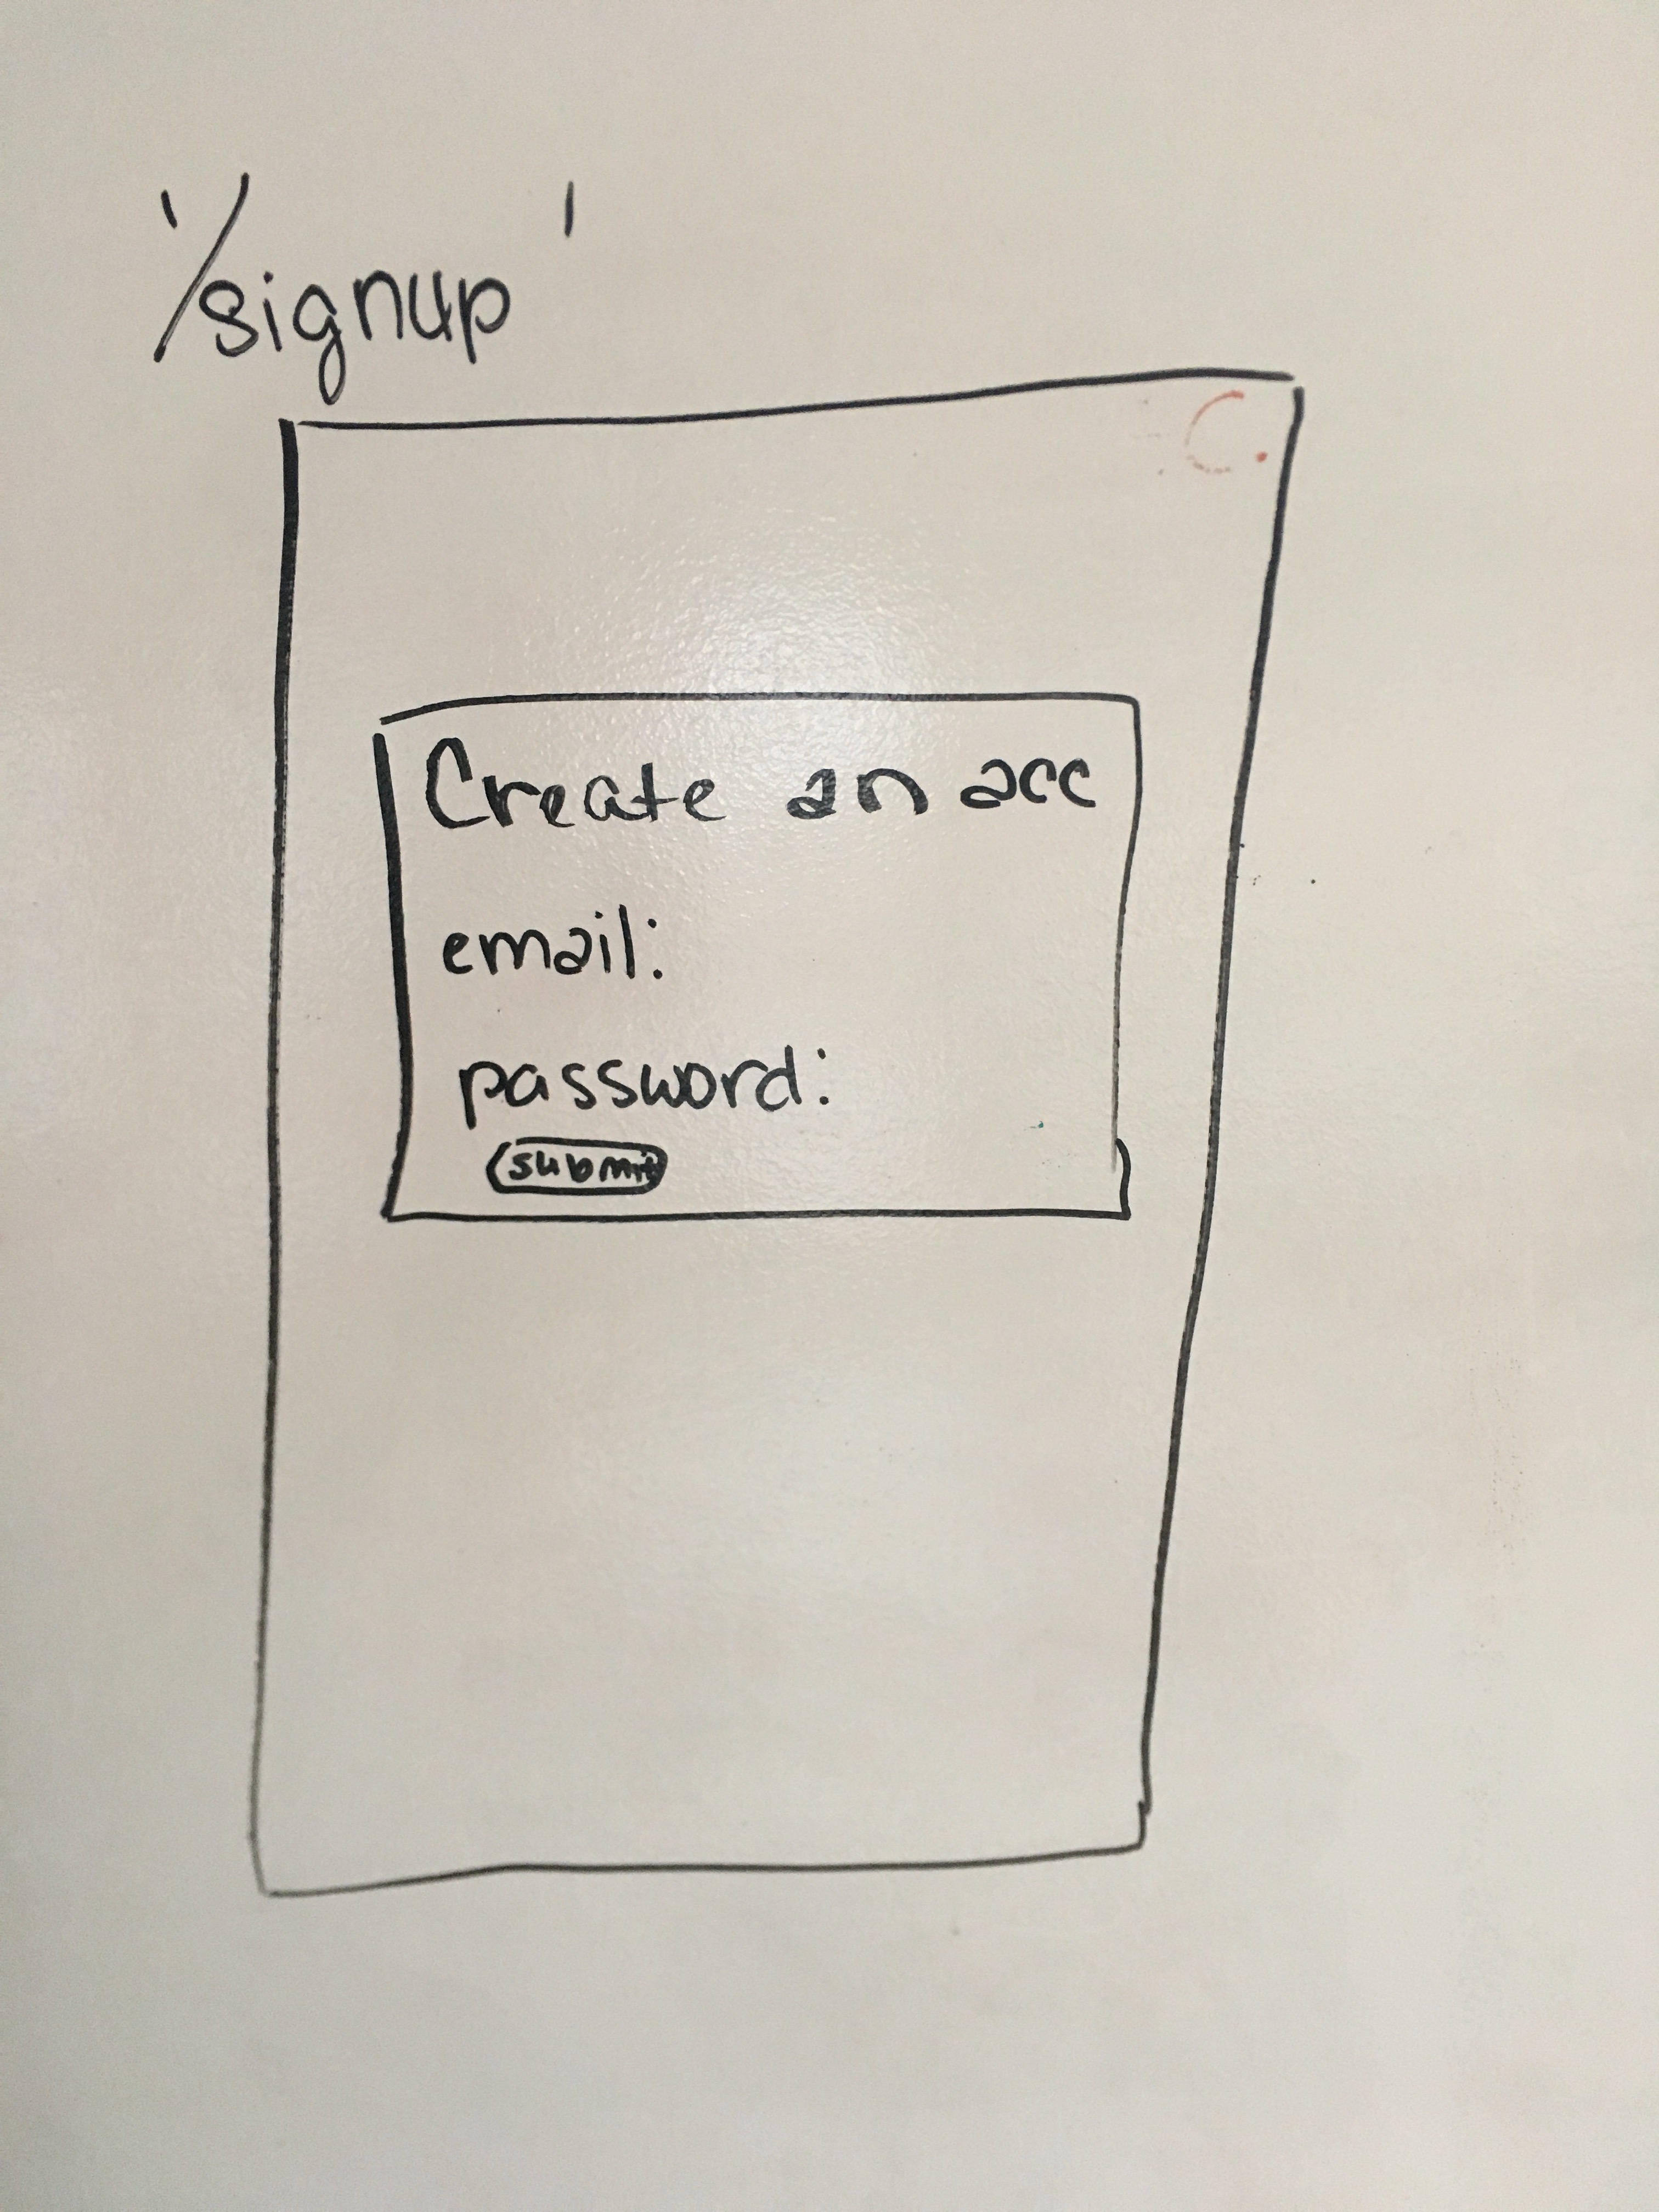 '/signup'
Create an acc
email:
password:
submit